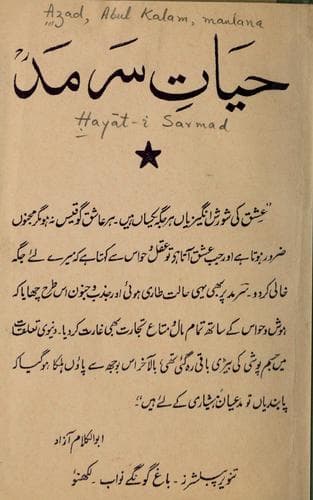 Azad, Abul Kalam, maulana
حیاتِ سرمدؒ
Ḥayāt-i Sarmad
”عشق کی شورش انگیزیاں ہر جگہ یکساں ہیں۔ ہر عاشق گو قیس نہ ہو مگر مجنوں
ضرور ہوتا ہے اور جب عشق آتا ہے تو عقل و حواس سے کہتا ہے کہ میرے لئے جگہ
خالی کر دو۔ سرمد پر بھی یہی حالت طاری ہوئی اور جذب و جنون اس طرح چھایا کہ
ہوش و حواس کے ساتھ تمام مال و متاع تجارت بھی غارت کر دیا۔ دنیوی تعلقات
میں جسم پوشی کی بیڑی باقی رہ گئی تھی بالآخر اس بوجھ سے پاؤں ہلکا ہو گیا کہ
پابندیاں تو مدعیانِ ہشیاری کے لئے ہیں“۔
ابوالکلام آزاد
تنویر پبلشرز۔ باغ گونگے نواب۔ لکھنؤ